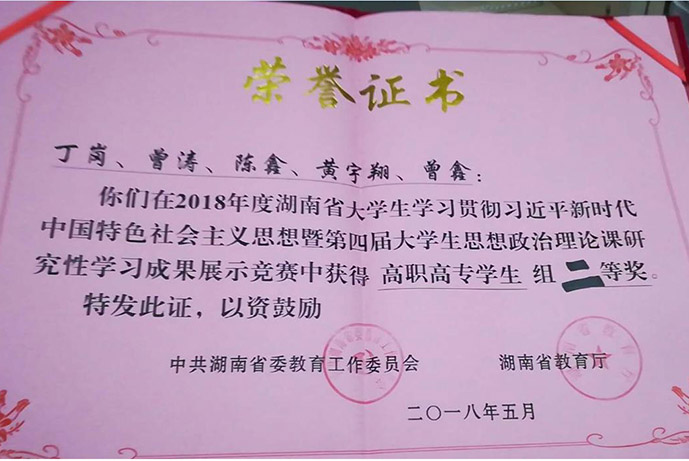 荣誉证书
丁岗、曾涛、陈鑫、黄宇翔、曾鑫：
你们在2018年度湖南省大学生学习贯彻习近平新时代
中国特色社会主义思想暨第四届大学生思想政治理论课研
究性学习成果展示竞赛中获得 高职高专学生 组 二等奖。
特发此证，以资鼓励
中共湖南省委教育工作委员会 湖南省教育厅
二〇一八年五月